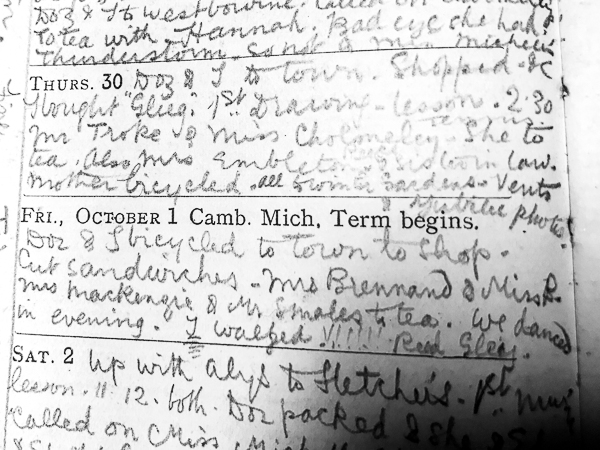 Doz & I to Westbourne. Called on
to tea with Hannah. Bad eye she had.
Thunderstorm.
THURS. 30 Doz & I to town. Shopped &c
1st Drawing-lesson. 2.30
Mr Troke & Miss Cholmeley. She to
tea. Also Mrs Embleton & sister in law.
Mother bicycled. all Winter Gardens. Vents
& photos.
FRI., OCTOBER 1 Camb. Mich, Term begins.
Doz & I bicycled to town to shop.
Cut sandwiches. Mrs Brennand & Miss B.
Mrs Mackenzie & Mr Smales to tea. We danced
in evening. I walked !!!!!! Read Gleig.
SAT. 2 Up with Alys to Fletcher's. 1st
lesson. 11.12. both. Doz packed & she &
Called on Miss